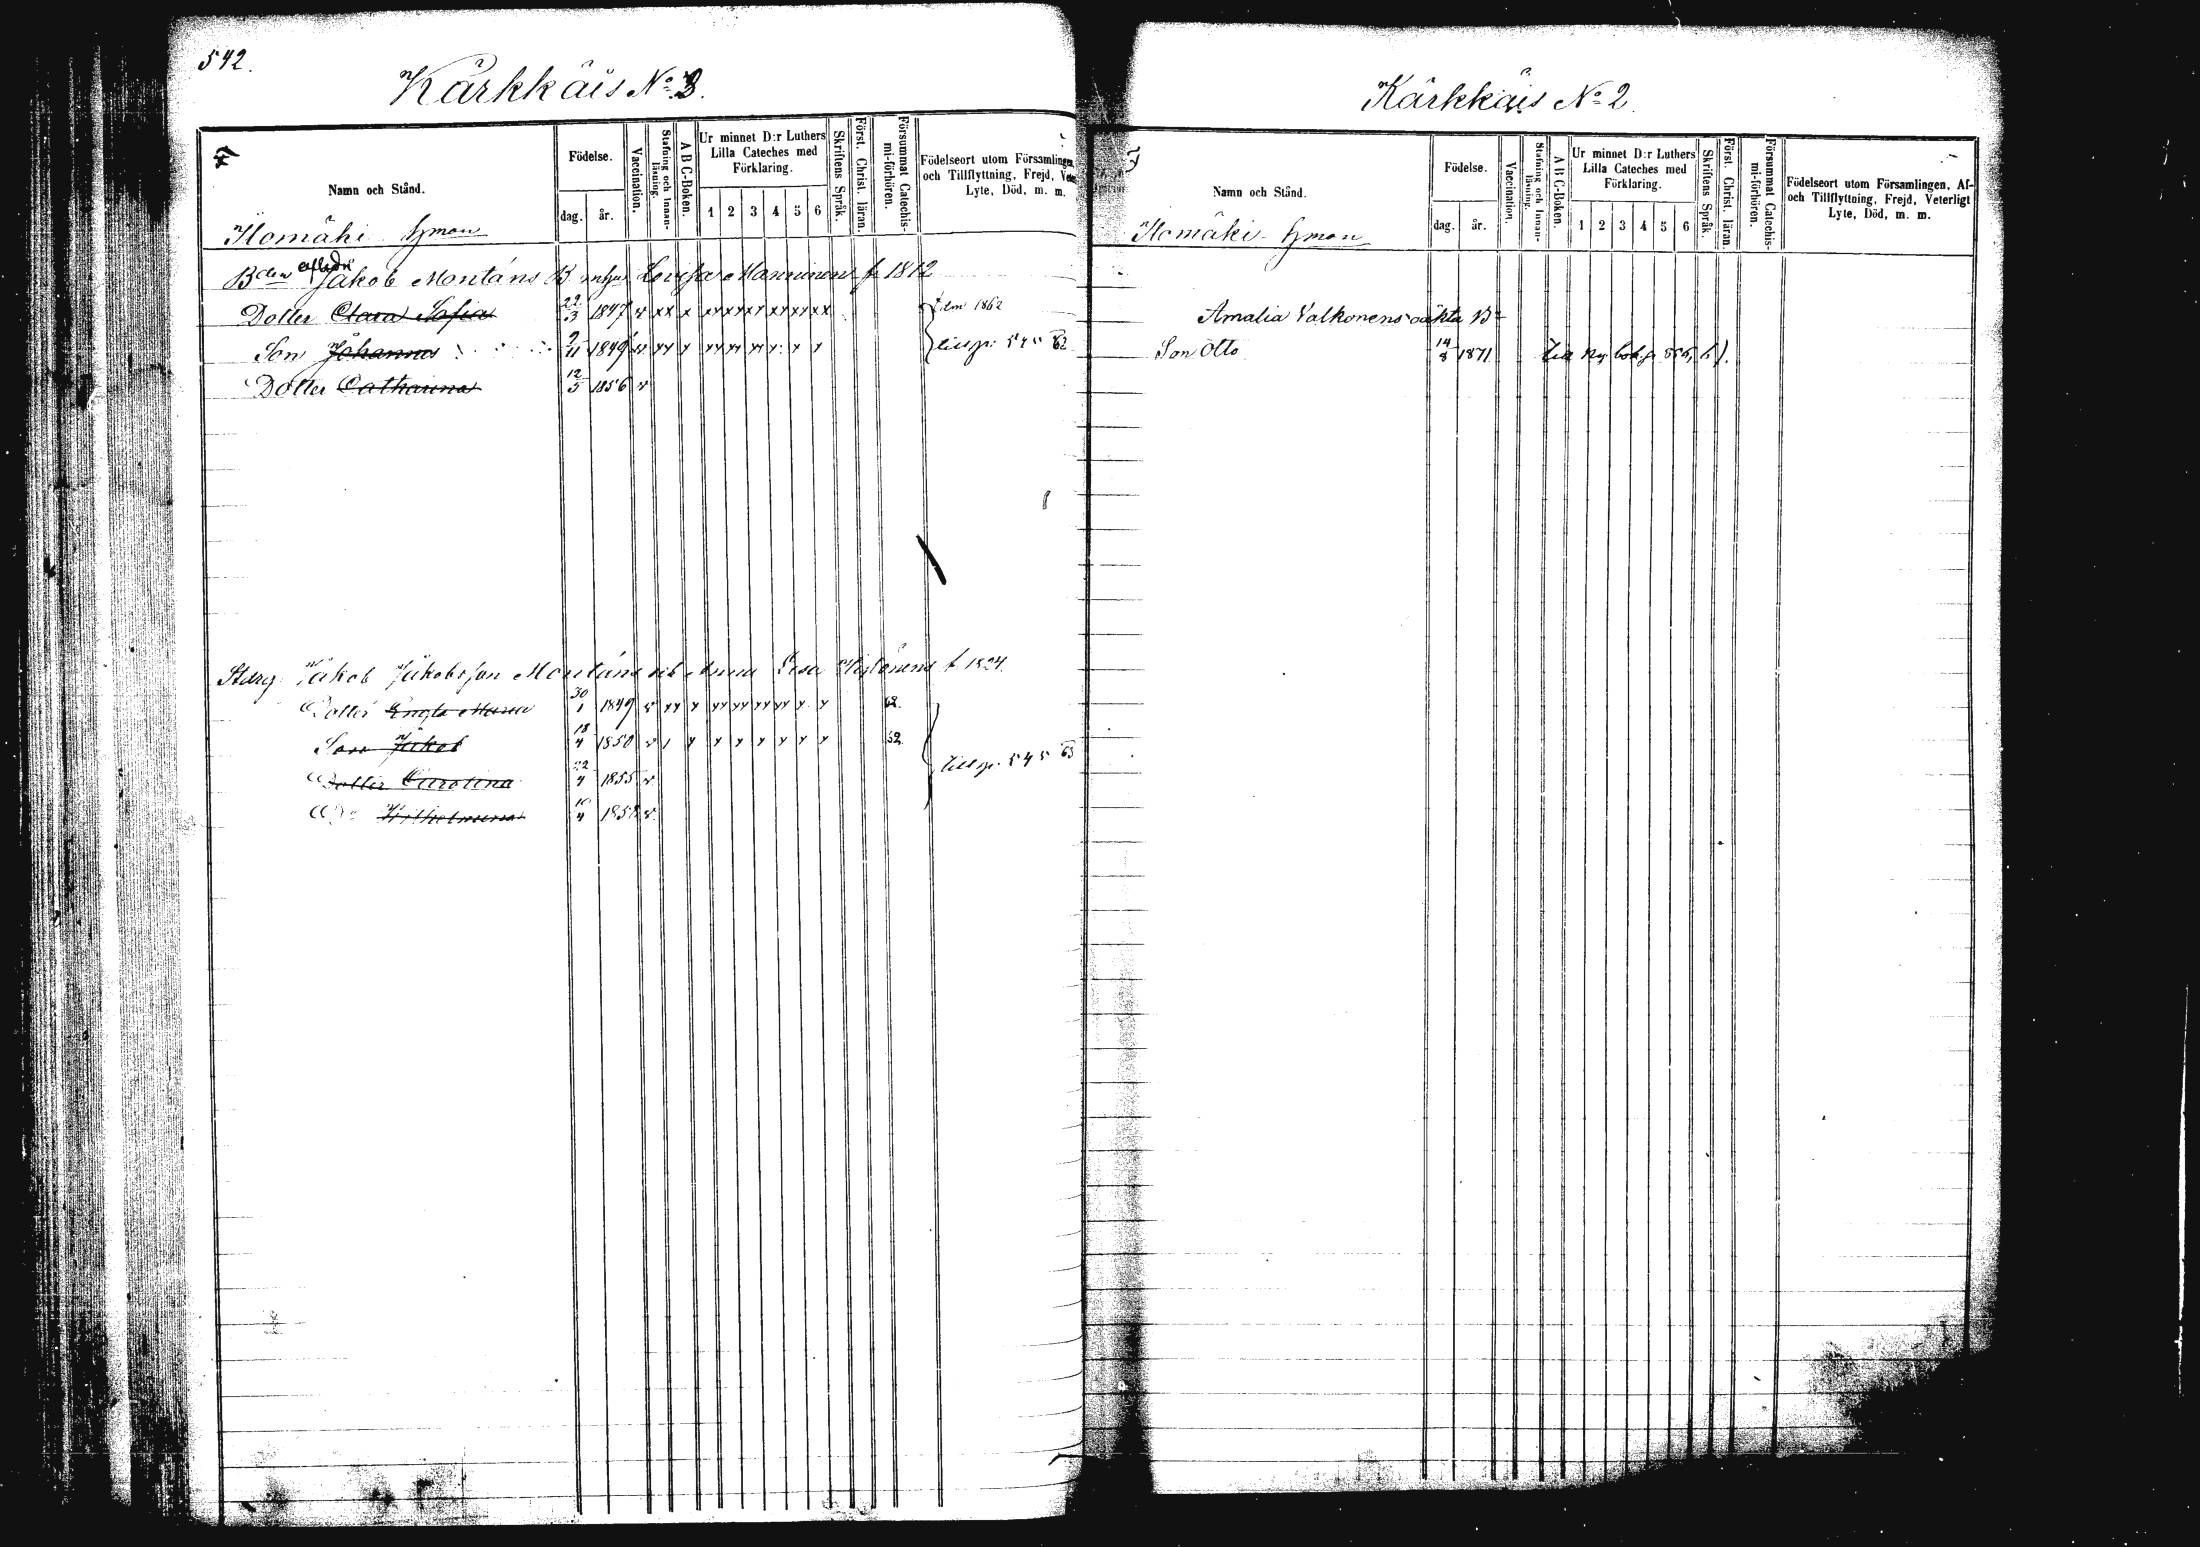 542.
Kärkkäis No 3.
Namn och Stånd.
Födelse.
dag. år.
Vaccination.
Stafning och Innan-läsning.
A B C-Boken.
Ur minnet D:r Luthers
Lilla Cateches med
Förklaring.
1 2 3 4 5 6
Skriftens Språk.
Först. Christ. läran.
Försummat Catechis-mi-förhören.
Födelseort utom Församlingen,
och Tillflyttning, Frejd,
Lyte, Död, m. m.
Ilomäki hman
Jakob Montáns B Lovisa Manninen f 1812
Dotter Clara Sofia 22/3 1847 1862
Son Johannes 9/11 1849 till p. 545 62
Dotter Catharina 12/5 1856
Jakob Jakobsson Montáns och Anna Lisa f 1824.
Dotter Engla Maria 30/1 1849 62.
Son Jakob 18/4 1850 52.
Dotter Carolina 22/4 1855 till p. 545 63
Do Wilhelmina 10/4 1858
Kärkkäis No 2.
Namn och Stånd.
Födelse.
dag. år.
Vaccination.
Stafning och Innan-läsning.
A B C-Boken.
Ur minnet D:r Luthers
Lilla Cateches med
Förklaring.
1 2 3 4 5 6
Skriftens Språk.
Först. Christ. läran.
Försummat Catechis-mi-förhören.
Födelseort utom Församlingen, Af-
och Tillflyttning, Frejd, Veterligt
Lyte, Död, m. m.
Ilomäki hman
Amalia Valkonens oäkta B
Son Otto 14/8 1871 till Ny bok p 556, b).